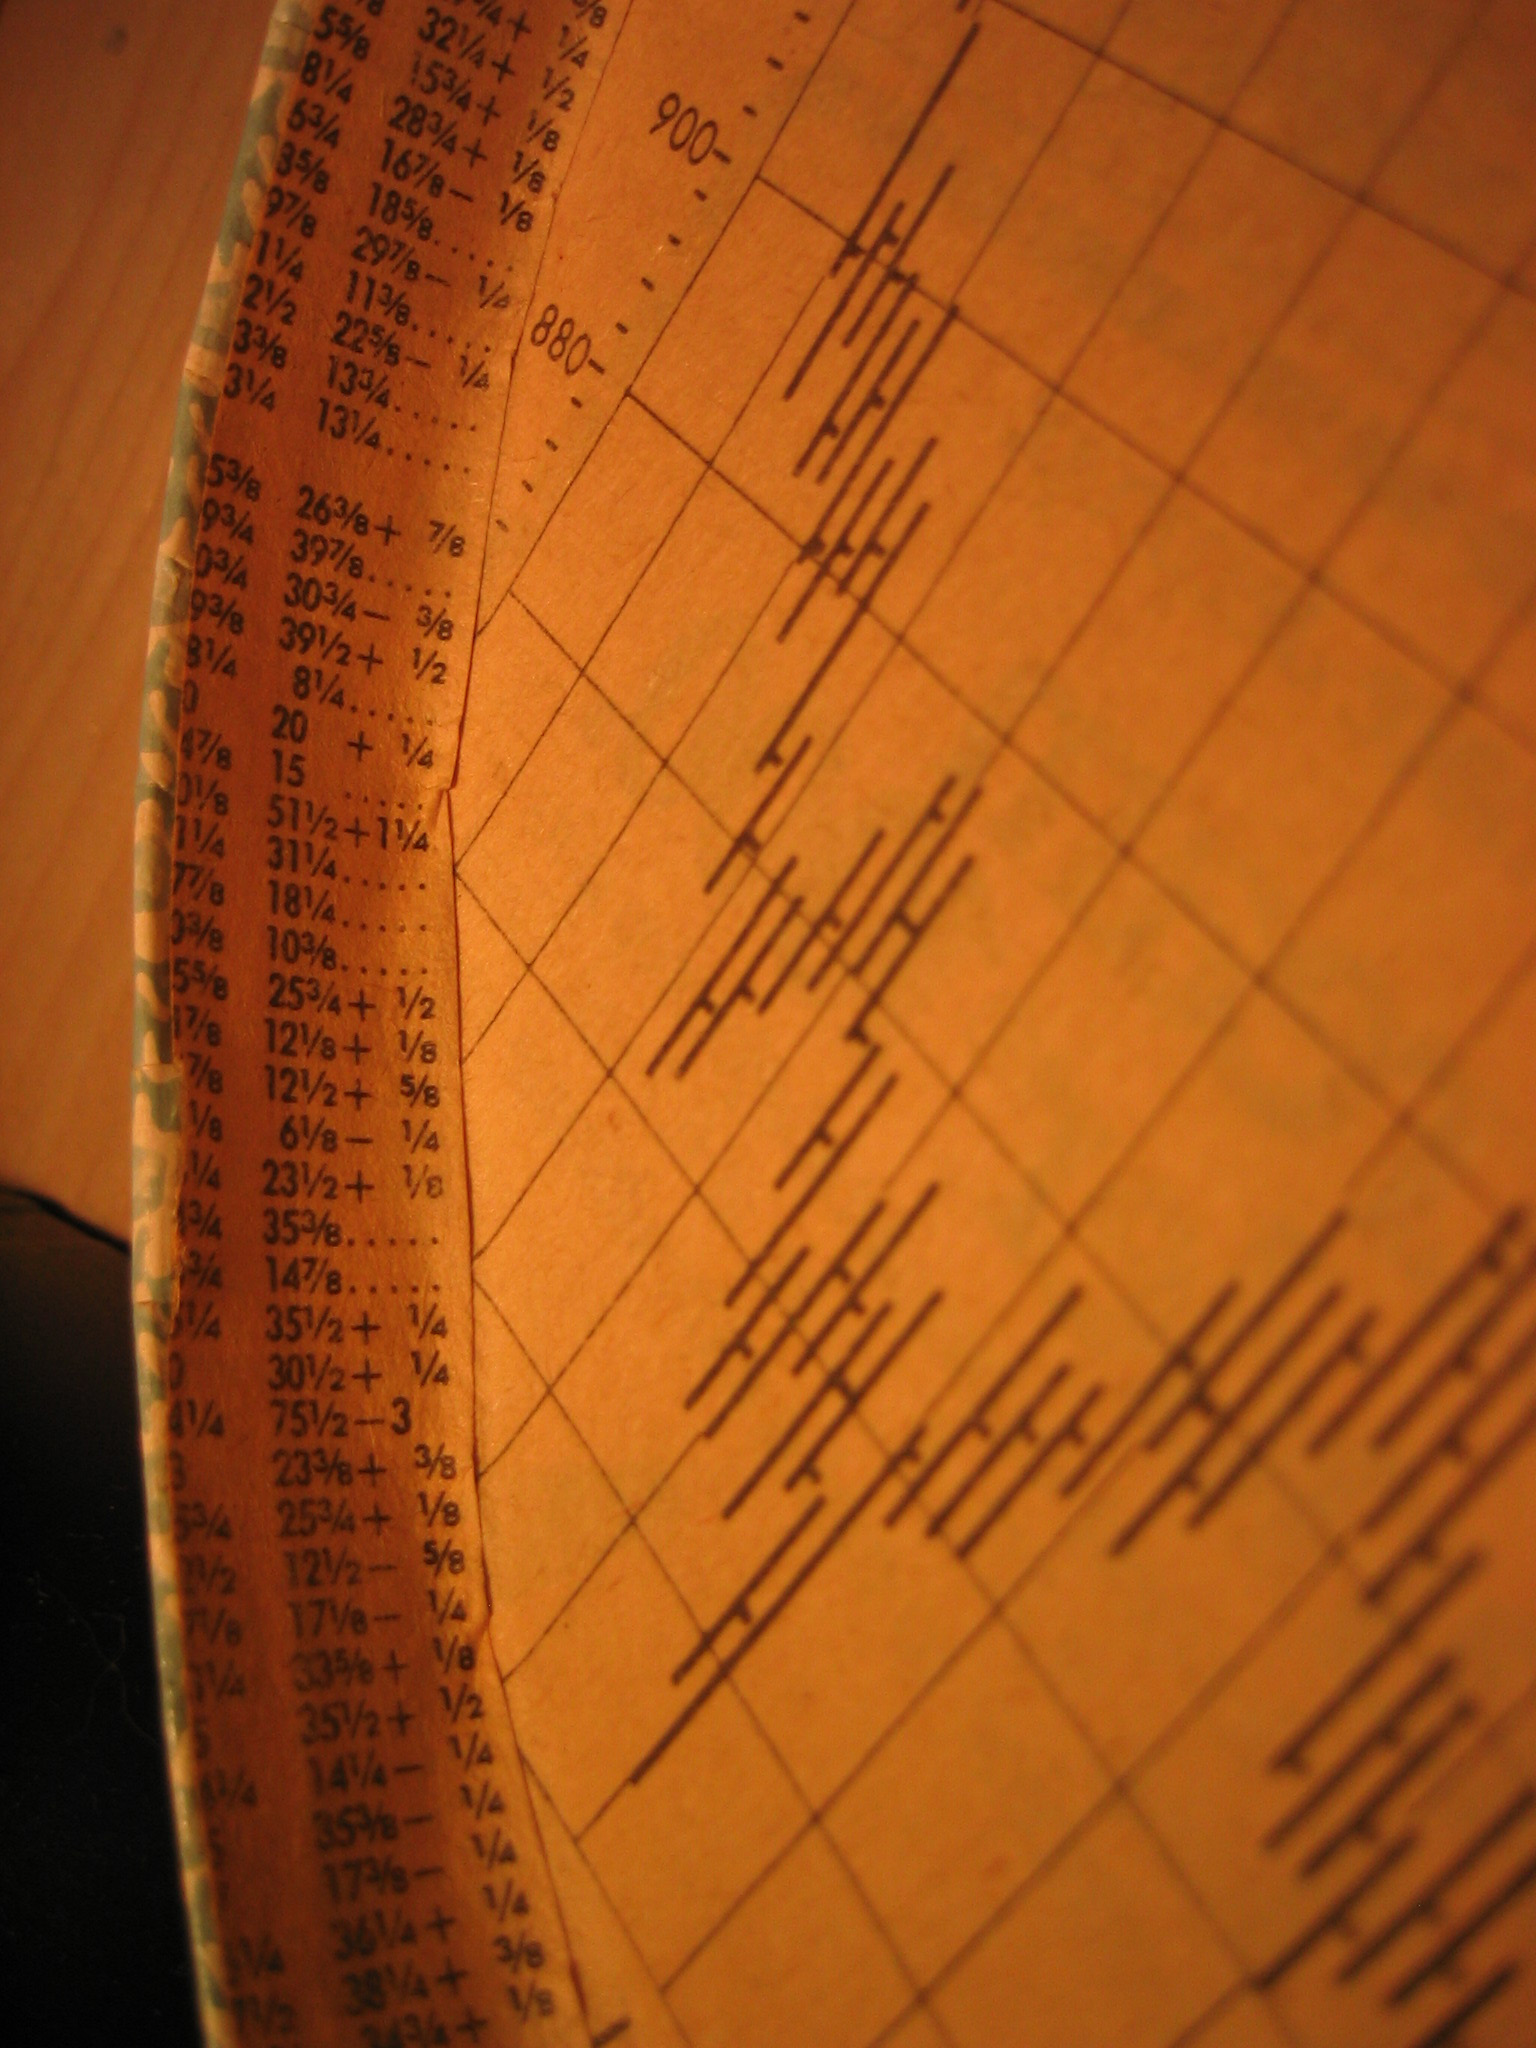 5⅝ 32¼+ ¼
8¼ 15¾+ ½
6¾ 28¾+ ⅛
3⅝ 16⅞− ⅛
9⅞ 18⅝....
1¼ 29⅞− ¼
2½ 11⅜.....
3⅜ 22⅝− ¼
3¼ 13¾.....
13¼.....
5⅜ 26⅜+ ⅞
9¾ 39⅞.....
0¾ 30¾− ⅜
9⅜ 39½+ ½
8¼ 8¼.....
0 20 + ¼
4⅞ 15 .....
0⅛ 51½+1¼
1¼ 31¼.....
7⅞ 18¼.....
0⅜ 10⅜.....
5⅝ 25¾+ ½
1⅞ 12⅛+ ⅛
⅞ 12½+ ⅝
⅛ 6⅛− ¼
¼ 23½+ ⅛
¾ 35⅜.....
¾ 14⅞.....
¼ 35½+ ¼
0 30½+ ¼
4¼ 75½−3
3 23⅜+ ⅜
5¾ 25¾+ ⅛
2½ 12½− ⅝
7⅛ 17⅛− ¼
¼ 33⅝+ ⅛
35½+ ½
14¼− ¼
35⅜− ¼
17⅜− ¼
36¼+ ¼
38¼+ ⅜
34¾+ ⅛
900-
880-